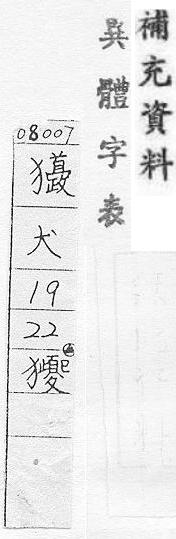 補充資料
異體字表
08007
犬
19
22